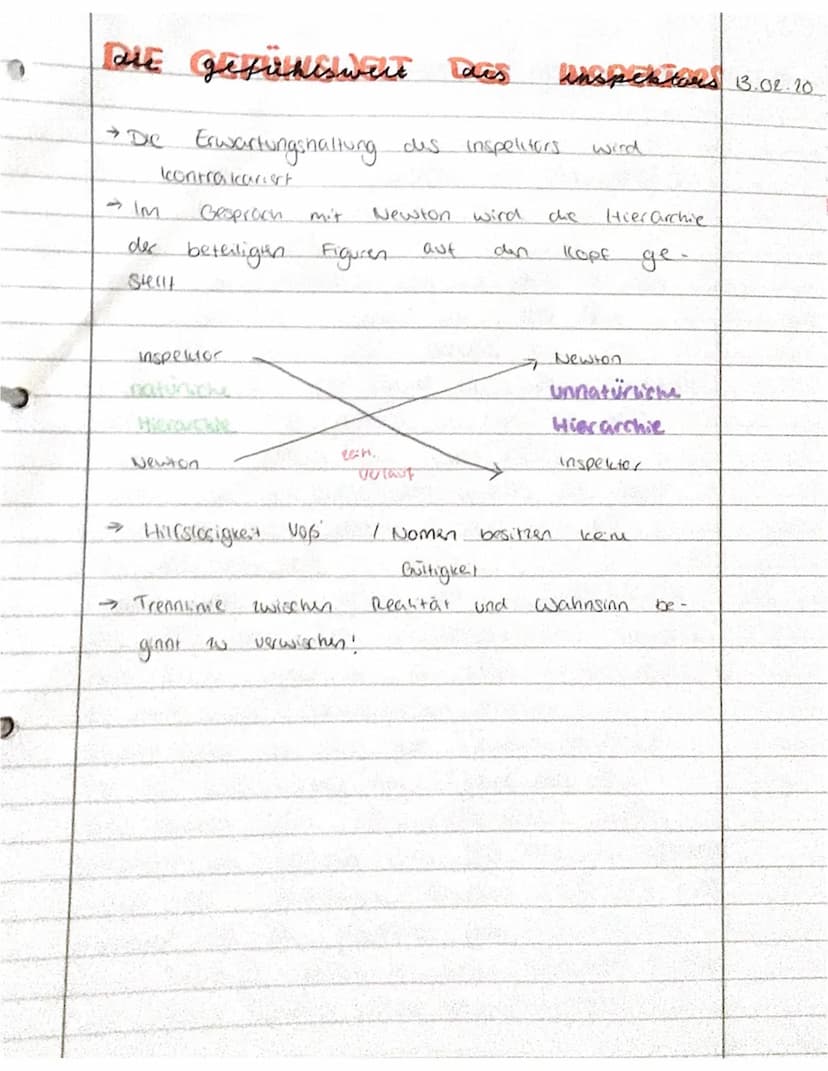 die gefühlswelt des inspektors 13.02.20
→ Die Erwartungshaltung des Inspektors wird
kontrakariert
→ Im Gespräch mit Newton wird die Hierarchie
der beteiligten Figuren auf den Kopf ge-
stellt
Inspektor Newton
natürliche unnatürliche
Hierarchie Hierarchie
Newton zeitl. Inspektor
Verlauf
→ Hilfslosigkeit Voß' / Nomen besitzen keine
Gültigkeit
→ Trennlinie zwischen Realität und Wahnsinn be-
ginnt zu verwischen!